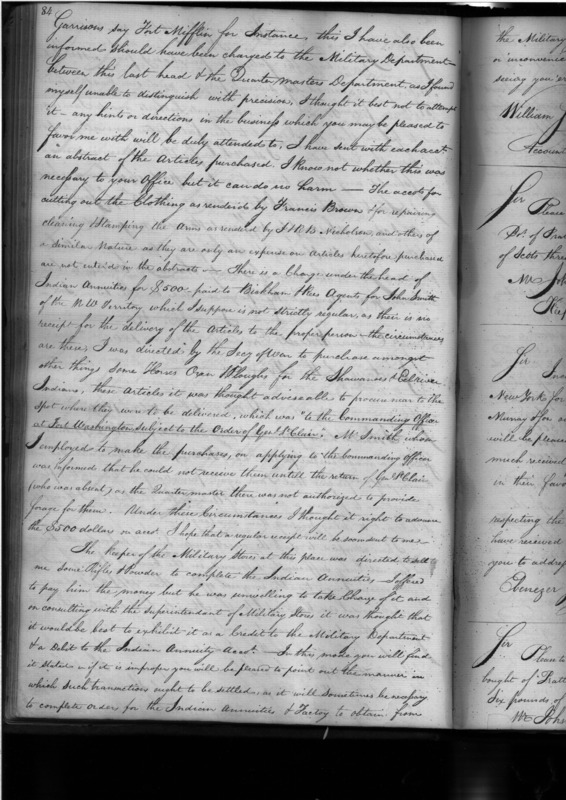 84
Garrisons say Fort Mifflin for Instance, this I have also been
informed should have been charged to the Military Department
between this last head & the Quarter masters Department, as I found
myself unable to distinguish with precision, I thought it best not to attempt
it – any hints or directions in the business which you may be pleased to
favor me with will be duly attended to, I have sent with each acct
an abstract of the Articles purchased. I know not whether this was
necessary to your Office but it can do no harm — The accot for
cutting out the Clothing as rendered by Francis Brown & for repairing
cleaning & Stamping the Arms as rendered by J & D B Nicholson, and others of
a similar Nature as they are only an expense on Articles heretofore purchased
are not entered in the abstracts — There is a Charge under the head of
Indian Annuities for $500 paid to Bickham & Rees Agents for John Smith
of the N.W. Territory which I suppose is not strictly regular, as their is no
receipt for the delivery of the Articles to the proper person – the circumstances
are these, I was directed by the Secy of War to purchase amongst
other things some Horses Oxen Ploughs for the Shawanese & Delaware
Indians, these Articles it was thought adviseable to procure near to the
spot where they were to be delivered, which was "to the Commanding Officer
at Fort Washington Subject to the Order of Genl St Clair. Mr Smith whom
I employed to make the purchases, on applying to the Commanding Officer
was informed that he could not receive them untill the return of Gen St Clair
(who was absent) as the Quartermaster there was not authorized to provide
forage for them. Under these Circumstances I thought it right to advance
the $500 dollar on acct. I hope that a regular receipt will be soon sent to me
The Keeper of the Military Stores at this place was directed to sell
me some Rifles & Powder to complete the Indian Annuities, I offered
to pay him the money but he was unwilling to take Charge of it and
on consulting with the Superintendant of Military Stores it was thought that
it would be best to exhibit it as a Credit to the Military Department
& a Debit to the Indian Annuity Acct. In this mode you will find
it stated – if it is improper you will be pleased to point out the manner in
which such transactions ought to be settled, as it will sometimes be necessary
to complete orders for the Indian Annuities & Factory to obtain from
the Military
or inconvenie
seeing you
William
Account
Sir
Please
Dr. of
of Scots thre
Mr. Jo
Kee
Sir
New York for
Murray & Son
will be please
much received
in their favo
respecting the
have received
you to addres
Ebenezer
Sir
Please to
bought of
Six pounds of
Mr John